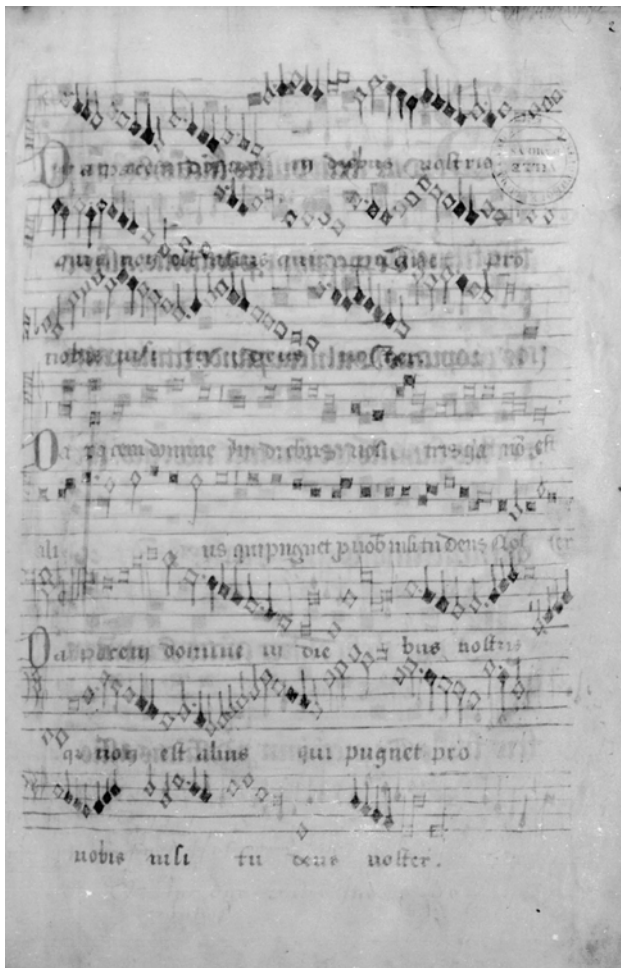 Da pacem domine in diebus nostris
quia non est alius qui pugnet pro
nobis nisi tu deus noster.
Da pacem domine in diebus nostris q̃a nō est
ali us qui pugnet p nob nisi tu deus nos ter
Da pacem domine in die bus nostris
q non est alius qui pugnet pro
nobis nisi tu deus noster.